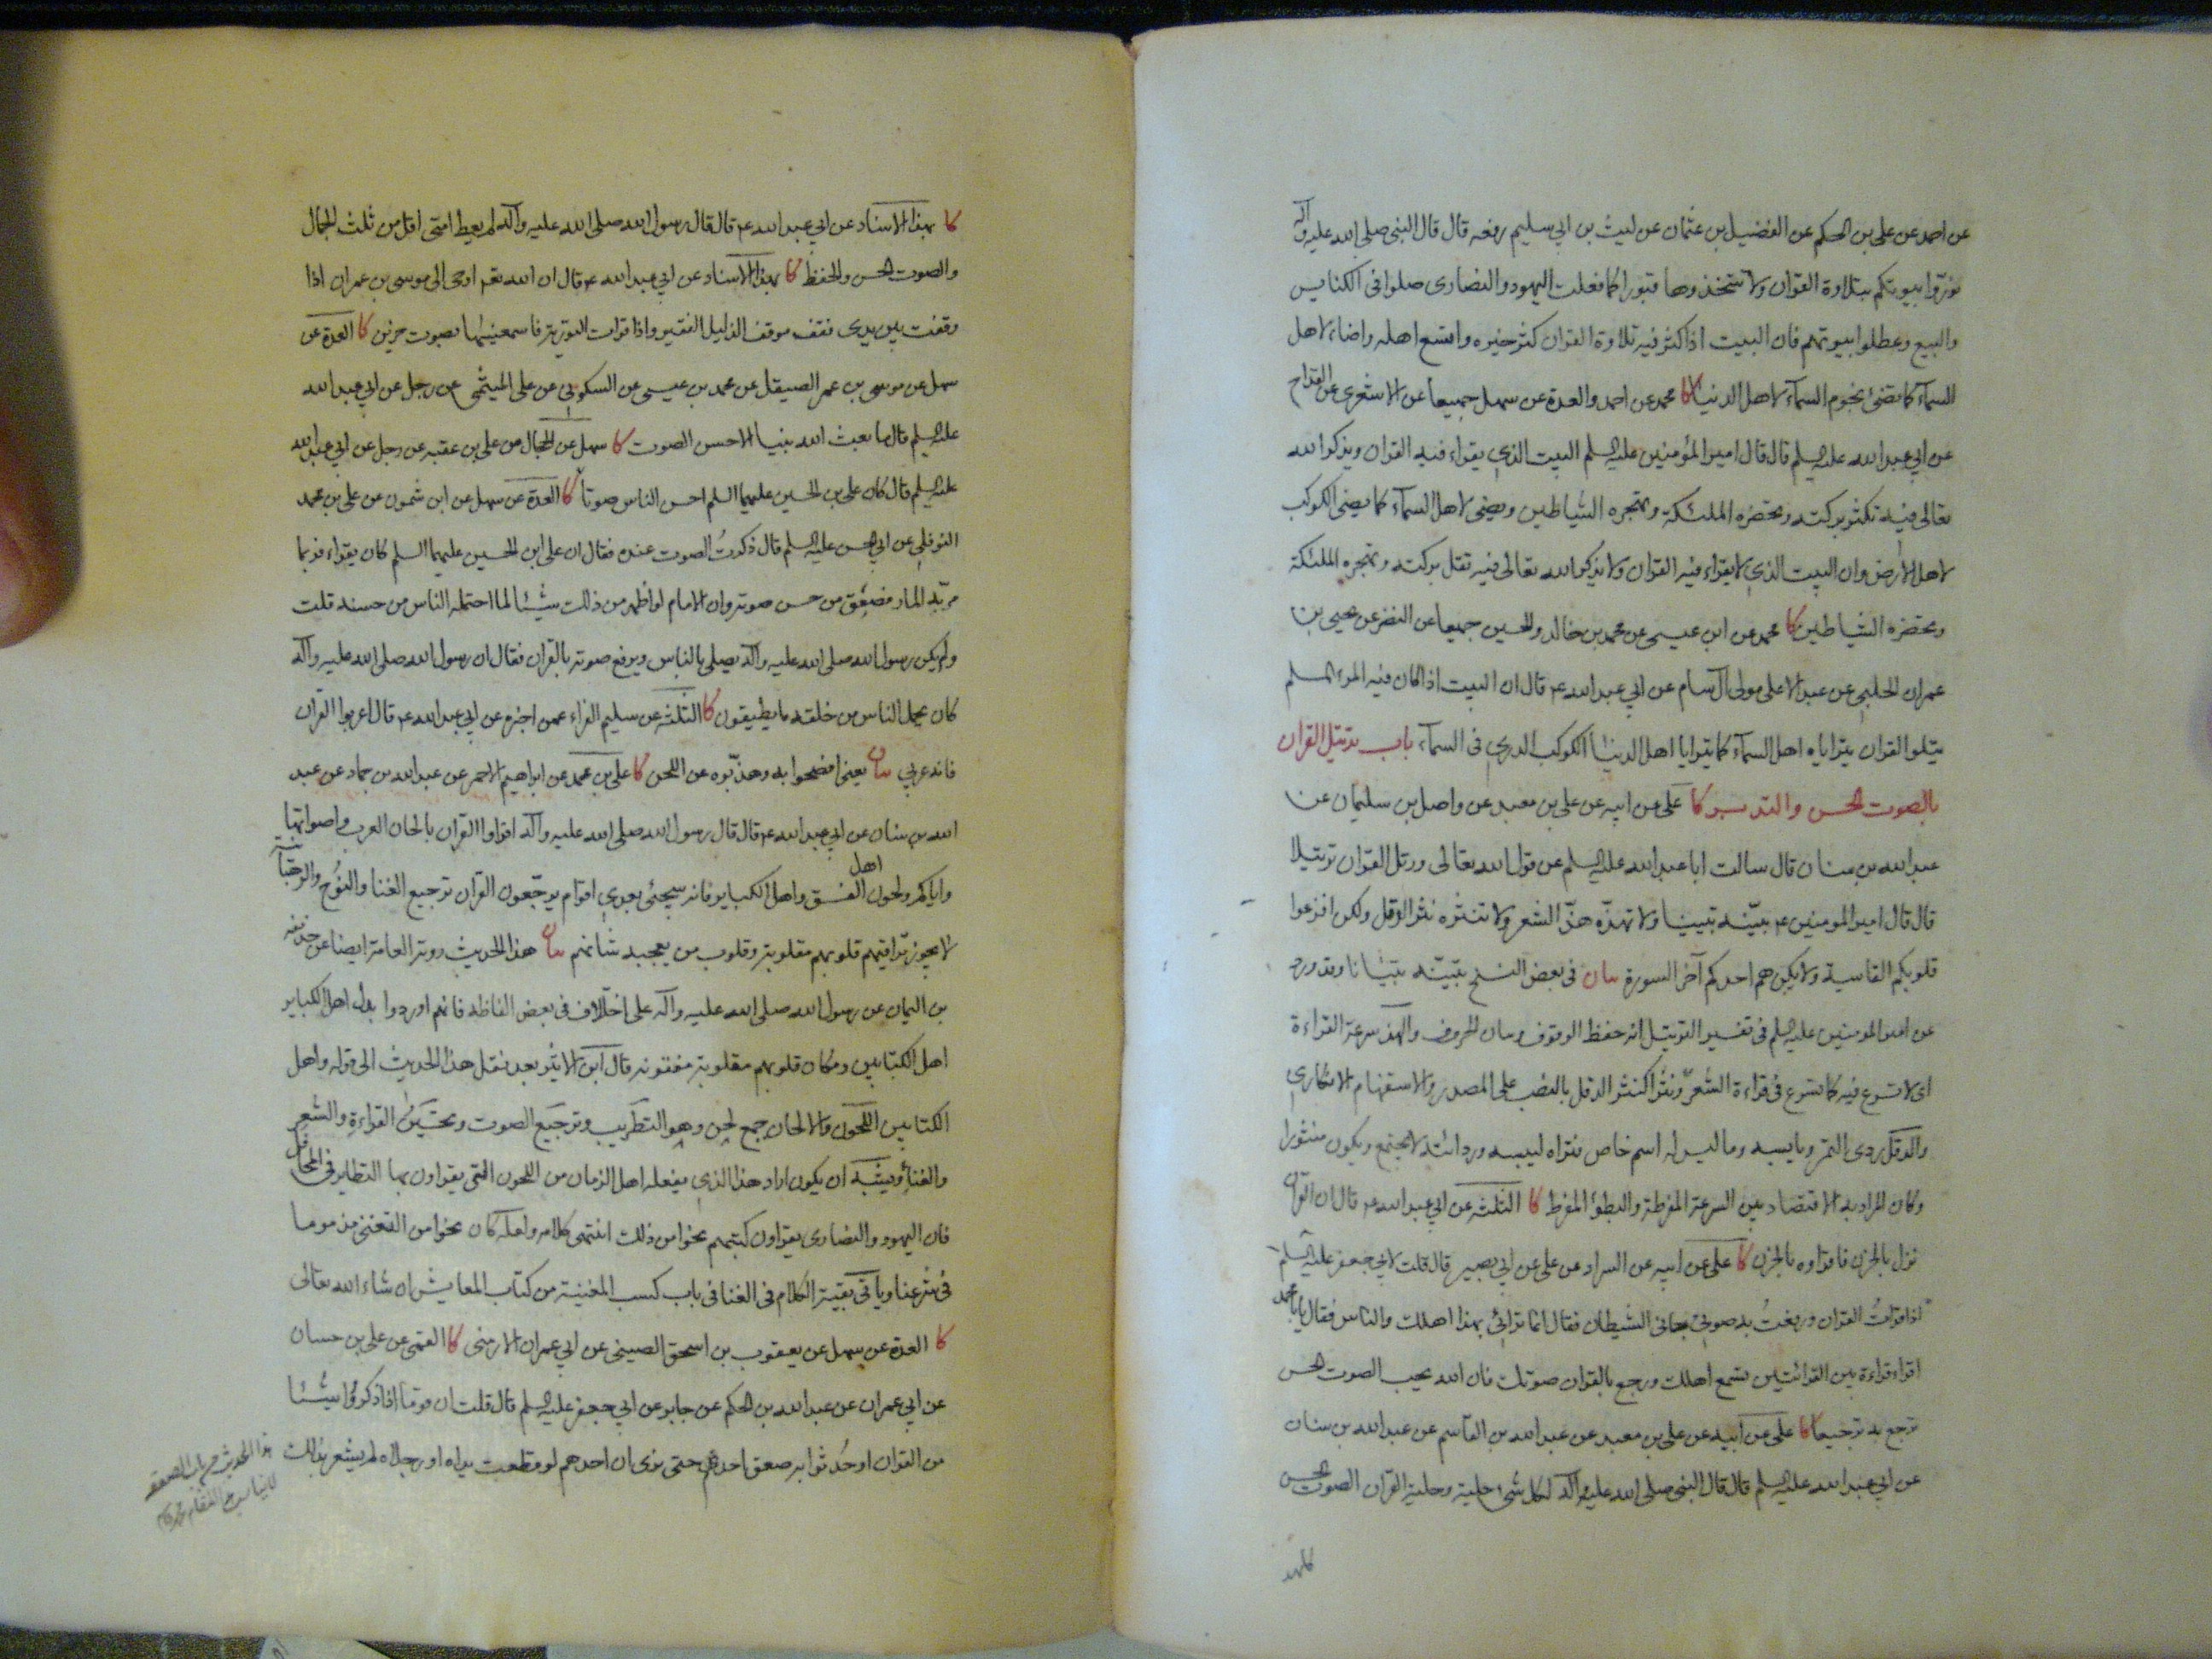 عن احمد عن علی بن الحکم عن الفضیل بن عثمان عن لیث بن ابی سلیم رفعه قال قال النبی صلی الله علیه وآله
نوّروا بیوتکم بتلاوة القرآن ولا تتخذوها قبورا کما فعلت الیهود والنصاری صلوا فی الکنایس
والبیع وعطلوا بیوتهم فان البیت اذا کثر فیه تلاوة القران کثر خیره واتسع اهله واضاء لاهل
السمآء کما تضئ نجوم السمآء لاهل الدنیا کا محمد عن احمد والعدة عن سهل جمیعا عن الاشعری عن القداح
عن ابی عبد الله علیه السلم قال قال امیر المؤمنین علیه السلم البیت الذی یقراء فیه القران ویذکر الله
تعالی فیه تکثر برکته وتحضره الملئکة وتهجره الشیاطین ویضئ لاهل السمآء کما یضئ الکوکب
لاهل الارض وان البیت الذی لا یقراء فیه القران ولا یذکر الله تعالی فیه تقل برکته وتهجره الملئکة
وتحضره الشیاطین کا محمد عن ابن عیسی عن محمد بن خالد والحسین جمیعا عن النضر عن یحیی بن
عمران الحلبی عن عبد الاعلی مولی آل سام عن ابی عبد الله ع قال ان البیت اذا کان فیه المرء المسلم
یتلوا القران یترایاه اهل السمآء کما یترایا اهل الدنیا الکوکب الدری فی السمآء باب ترتیل القران
بالصوت الحسن والتدبر کا علی عن ابیه عن علی بن معبد عن واصل بن سلیمان عن
عبد الله بن سنان قال سالت ابا عبد الله علیه السلم عن قول الله تعالی ورتل القران ترتیلا
قال قال امیر المومنین ع بیّنه تبیینا ولا تهذّه هذّ الشعر ولا تنثره نثر الرمل ولکن افزعوا
قلوبکم القاسیة ولا یکن هم احدکم آخر السورة بیان فی بعض النسخ تبیّنه تبیانا وقد ورد
عن امیر المومنین علیه السلم فی تفسیر الترتیل انه حفظ الوقوف وبیان الحروف والهذ سرعة القراءة
ای لا تسرع فیه کما تسرع فی قراءة الشعر ونثرا کنثر الدقل بالنصب علی المصدر والاستفهام الانکاری
والدقل ردی التمر ویابسه وما لیس له اسم خاص فتراه لیبسه وردائته لا یجتمع ویکون منثورا
وکان المراد به الاقتصاد بین السرعة المفرطة والبطؤ المفرط کا الثلثة عن ابی عبد الله ع قال ان القرآن
نزل بالحزن فاقراوه بالحزن کا علی عن ابیه عن السراد عن علی عن ابی بصیر قال قلت لابی جعفر علیه السلم
اذا قرات القران ورفعت به صوتی جائنی الشیطان فقال انما ترائی بهذا اهلک والناس فقال یا با محمد
اقراء قراءة بین القرائتین تسمع اهلک ورجع بالقران صوتک فان الله یحب الصوت الحسن
ترجع به ترجیعا کا علی عن ابیه عن علی بن معبد عن عبد الله بن القاسم عن عبد الله بن سنان
عن ابی عبد الله علیه السلم قال قال النبی صلی الله علیه وآله لکل شئ حلیة وحلیة القرآن الصوت الحسن
کا بهذا الاسناد عن ابی عبد الله ع قال قال رسول الله صلی الله علیه وآله لم یعط امتی اقل من ثلث الجمال
والصوت الحسن والحفظ کا بهذا الاسناد عن ابی عبد الله ع قال ان الله تعم اوحی الی موسی بن عمران اذا
وقفت بین یدی فقف موقف الذلیل الفقیر واذا قرات التوریة فاسمعنیها بصوت حزین کا العدة عن
سهل عن موسی بن عمر الصیقل عن محمد بن عیسی عن السکونی عن علی المیثمی عن رجل عن ابی عبد الله
علیه السلم قال ما بعث الله نبیا الا حسن الصوت کا سهل عن الحجال عن علی بن عقبه عن رجل عن ابی عبد الله
علیه السلم قال کان علی بن الحسین علیهما السلم احسن الناس صوتا کا العدة عن سهل عن ابن شمون عن علی بن محمد
النوفلی عن ابی الحسن علیه السلم قال ذکرت الصوت عنده فقال ان علی ابن الحسین علیهما السلم کان یقراء فربما
مرّ به المار فصعق من حسن صوته وان الامام لو اظهر من ذلک شیئا لما احتمله الناس من حسنه قلت
ولم یکن رسول الله صلی الله علیه وآله یصلی بالناس ویرفع صوته بالقرآن فقال ان رسول الله صلی الله علیه وآله
کان یحمل الناس من خلقه ما یطیقون کا الثلثة عن سلیم الفراء عمن اخبره عن ابی عبد الله ع قال اعربوا القرآن
فانه عربی بیان یعنی افصحوا به وهذّبوه عن اللحن کا علی بن محمد عن ابراهیم الاحمر عن عبد الله بن حماد عن عبد
الله بن سنان عن ابی عبد الله ع قال قال رسول الله صلی الله علیه وآله اقراوا القرآن بالحان العرب واصواتها
وایاکم ولحون اهل الفسق واهل الکبایر فانه سیجئ بعدی اقوام یرجّعون القرآن ترجیع الغنا والنوح والرهبانیة
لا یجوز تراقیهم قلوبهم مقلوبة وقلوب من یعجبه شانهم بیان هذا الحدیث روته العامة ایضا عن حذیفه
بن الیمان عن رسول الله صلی الله علیه وآله علی اختلاف فی بعض الفاظه فانهم اوردوا بدل اهل الکبایر
اهل الکتابین ومکان قلوبهم مقلوبة مفتونه قال ابن الاثیر بعد نقل هذا الحدیث الی قوله واهل
الکتابین اللحون والالحان جمع لحن وهو التطریب وترجیع الصوت وتحسین القراءة والشعر
والغناء ویشبه ان یکون اراد هذا الذی یفعله اهل الزمان من اللحون التی یقراون بها النظایر فی المحافل
فان الیهود والنصاری یقراون کتبهم نحوا من ذلک انتهی کلامه ولعله کان نحوا من التغنی مذموما
فی شرعنا ویاتی بقیة الکلام فی الغنا فی باب کسب المغنیة من کتاب المعایش ان شاء الله تعالی
کا العدة عن سهل عن یعقوب بن اسحق الضبی عن ابی عمران الارمنی کا القمی عن علی بن حسان
عن ابی عمران عن عبد الله بن الحکم عن جابر عن ابی جعفر علیه السلم قال قلت ان قوما اذا ذکروا شیئا
من القرآن او حُدثوا به صعق احدهم حتی نری ان احدهم لو قطعت یداه او رجلاه لم یشعر بذلک